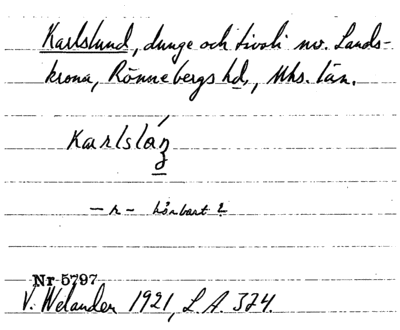 Karlslund, dunge och tivoli nv. Lands-
krona, Rönnebergs hd, Mhs. län.
Karlslóŋ
– r – hörbart?
Nr 5797
V. Welander 1921, L.A. 374.